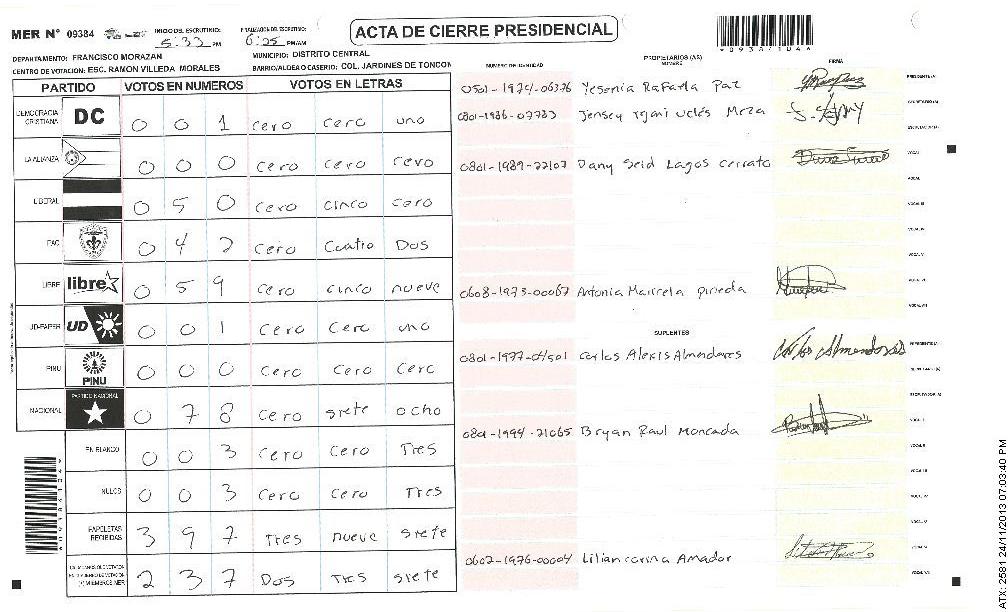 ACTA DE CIERRE PRESIDENCIAL
MER N° 09384
INICIO DEL ESCRUTINIO: 5:33 PM
FINALIZACION DEL ESCRUTINIO: 6:25 PM/AM
*09384104*
DEPARTAMENTO: FRANCISCO MORAZAN
MUNICIPIO: DISTRITO CENTRAL
CENTRO DE VOTACION: ESC. RAMON VILLEDA MORALES
BARRIO/ALDEA O CASERIO: COL. JARDINES DE TONCON
PARTIDO VOTOS EN NUMEROS VOTOS EN LETRAS
DEMOCRACIA CRISTIANA DC 0 0 1 cero cero uno
LA ALIANZA 0 0 0 cero cero cero
LIBERAL 0 5 0 cero cinco cero
PAC 0 4 2 cero cuatro Dos
LIBRE libre 0 5 9 cero cinco nueve
UD-FAPER UD 0 0 1 cero cero uno
PINU PINU 0 0 0 cero cero cero
NACIONAL PARTIDO NACIONAL 0 7 8 cero siete ocho
EN BLANCO 0 0 3 cero cero Tres
NULOS 0 0 3 cero cero Tres
PAPELETAS RECIBIDAS 3 9 7 Tres nueve siete
2 3 7 Dos Tres siete
NUMERO DE IDENTIDAD PROPIETARIOS (AS) NOMBRE FIRMA
0501-1974-06376 Yesenia Rafaela Paz PRESIDENTE (A)
0801-1986-07783 Jensey Tojani Uclés Meza SECRETARIO (A)
ESCRUTADOR (A)
0801-1989-22107 Dany Seid Lagos cerrato VOCAL I
VOCAL II
VOCAL III
VOCAL IV
VOCAL V
0608-1973-00067 Antonia Marcela pineda VOCAL VI
VOCAL VII
SUPLENTES
0801-1977-04501 Carlos Alexis Almendares Carlos Almendares PRESIDENTE (A)
SECRETARIO (A)
ESCRUTADOR (A)
0801-1994-21065 Bryan Raul Moncada VOCAL I
VOCAL II
VOCAL III
VOCAL IV
VOCAL V
0602-1976-00004 Lilian corina Amador VOCAL VI
VOCAL VII
ATX: 2581 24/11/2013 07:03:40 PM